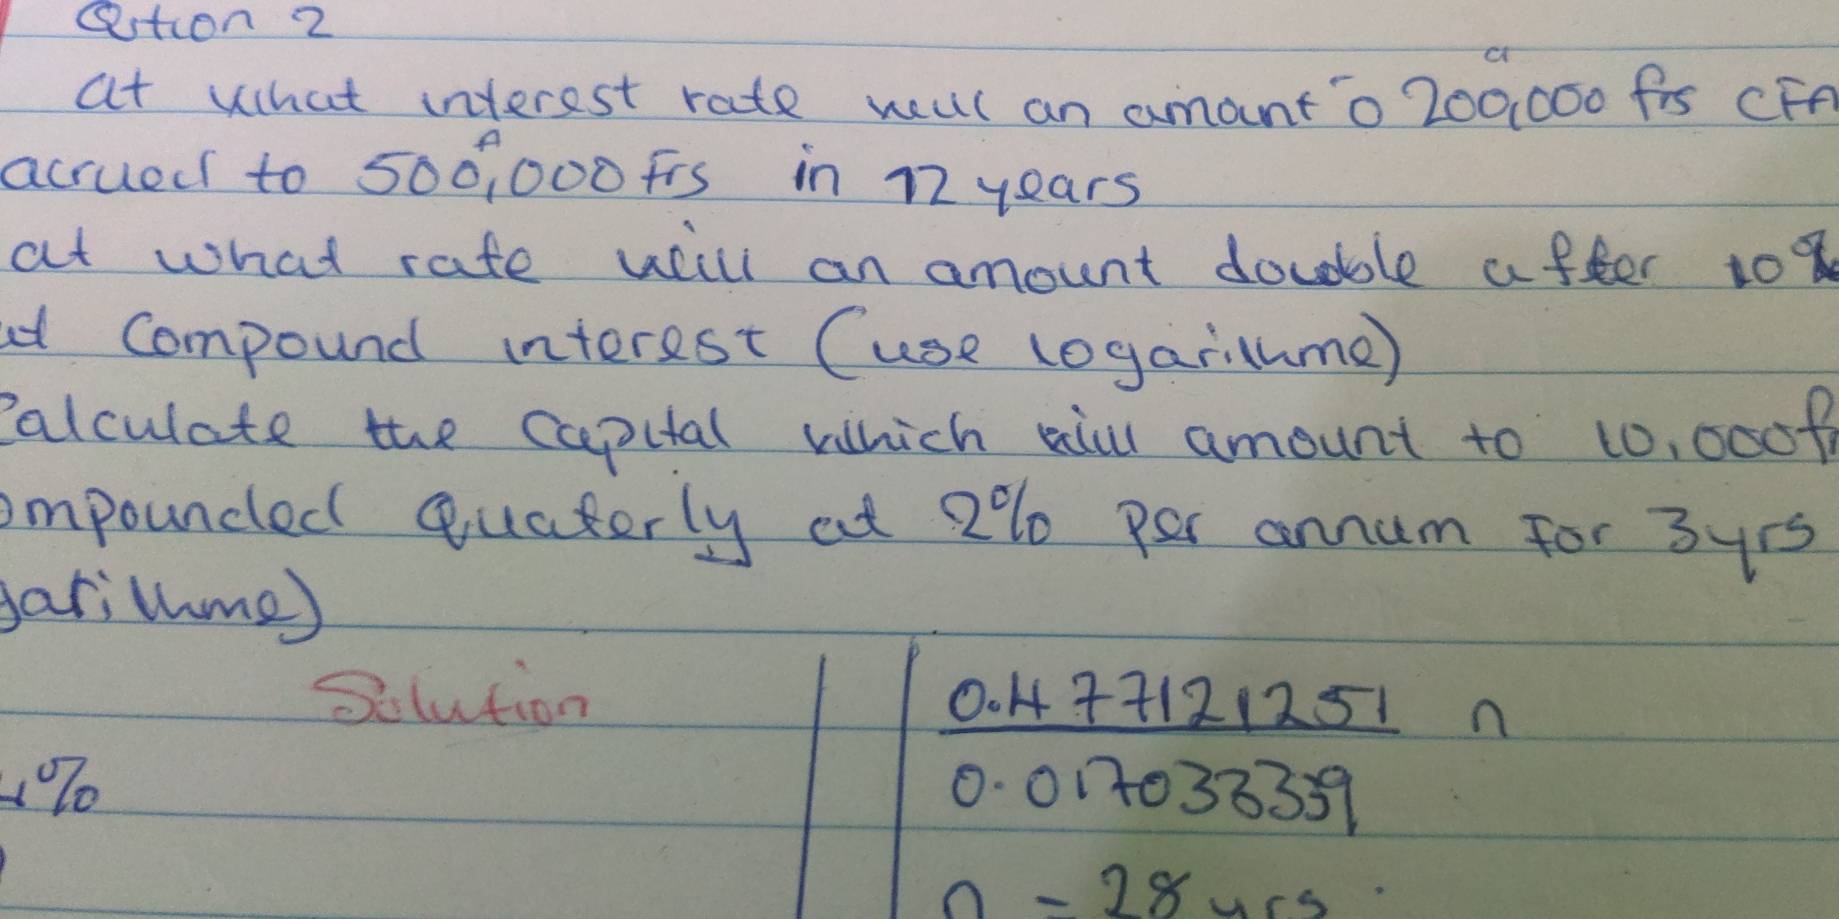 Qstion 2
at what interest rate will an amount o 200,000 frs CFA
a
acrued to 500,000 Frs in 12 years
A
at what rate will an amount double after 10%
at compound interest (use logarithme)
Calculate the capital which will amount to 10,000f
ompounded Quaterly at 2% Per annum For 3yrs
garithme)
Solution
0.477121251 n
0.017033339
%
n = 28 yrs.